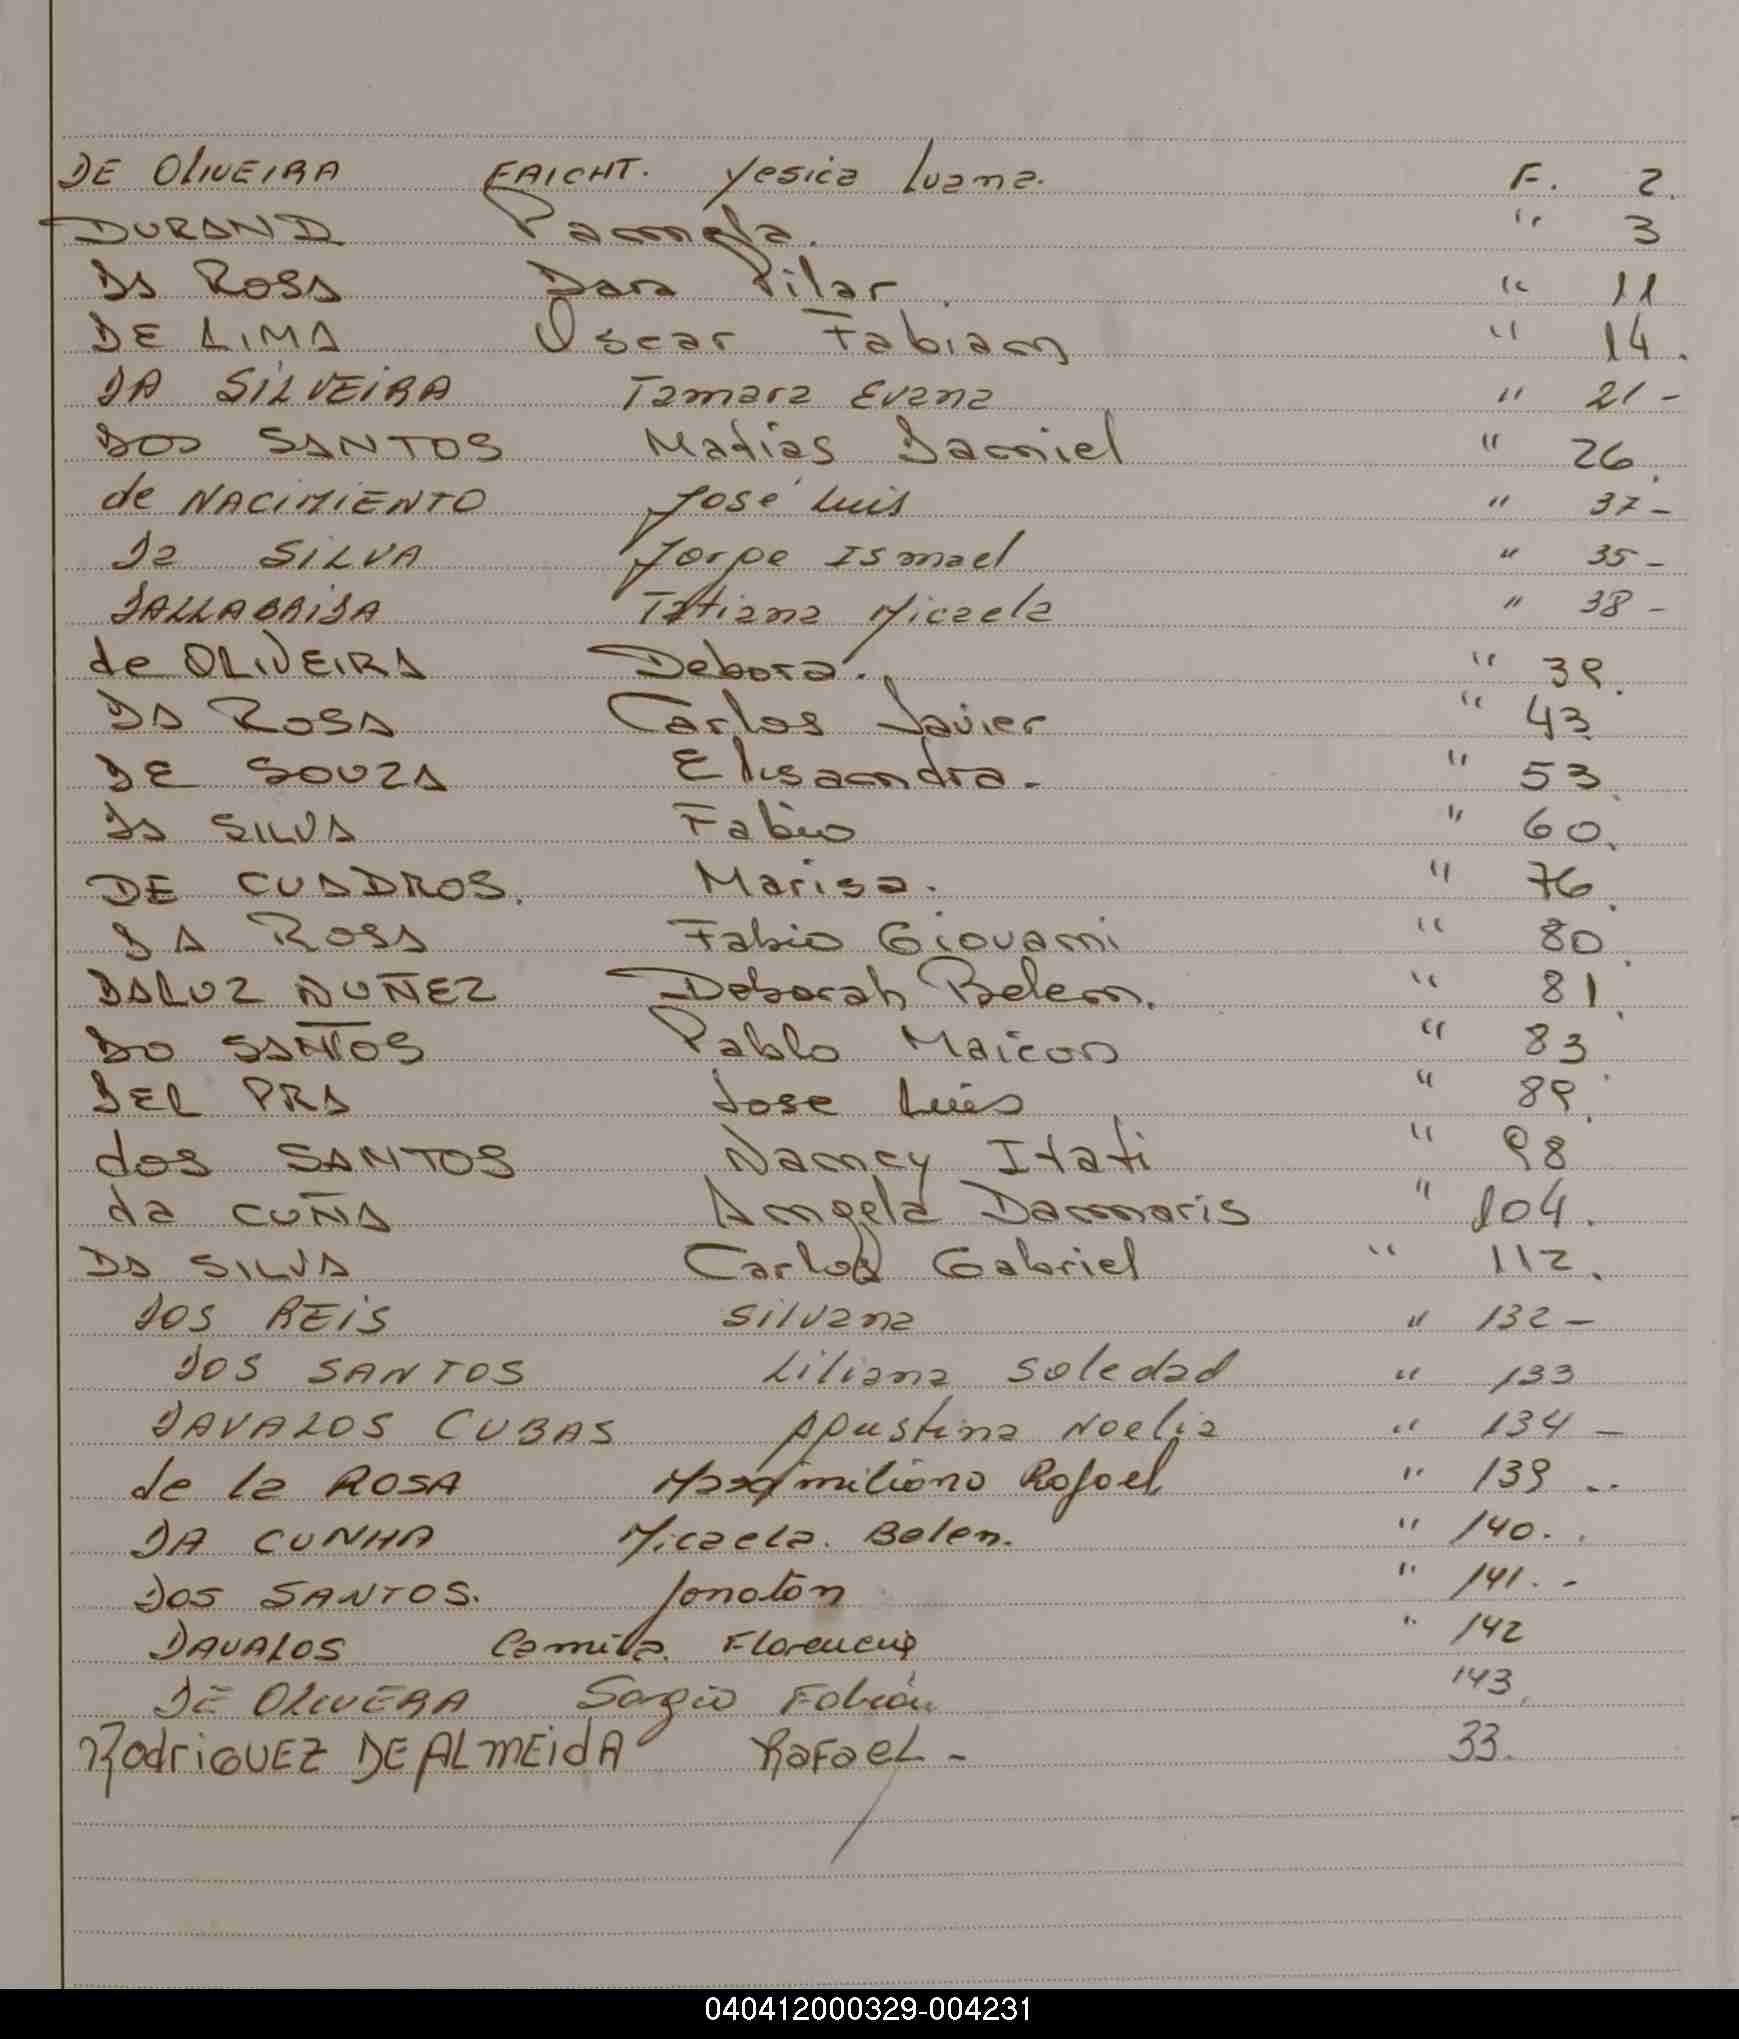 DE OLIVEIRA FAICHT. Yesica Luana. F. 2.
DURAND Pamela. " 3
DA ROSA Dara Pilar. " 11
DE LIMA Oscar Fabian " 14.
DA SILVEIRA Tamara Evana " 21 -
DOS SANTOS Matias Daniel " 26.
de NACIMIENTO José Luis " 37 -
Da SILVA Jorge Ismael " 35 -
DALLABRIDA Tatiana Micaela " 38 -
de OLIVEIRA Debora. " 39.
DA ROSA Carlos Javier " 43
DE SOUZA Elisandra. " 53.
DA SILVA Fabio " 60.
DE CUADROS. Marisa. " 76.
DA ROSA Fabio Giovani " 80.
DALUZ NUÑEZ Deborah Belen. " 81.
DO SANTOS Pablo Maicon " 83
DEL PRA Jose Luis " 89.
dos SANTOS Nancy Itati " 98
da CUÑA Angela Dammaris " 104.
DA SILVA Carlos Gabriel " 112.
DOS REIS Silvana " 132 -
DOS SANTOS Liliana Soledad " 133
DAVALOS CUBAS Agustina Noelia " 134 -
de la ROSA Maximiliano Rafael " 139 -
DA CUNHA Micaela. Belen. " 140.
DOS SANTOS. Jonatan " 141. -
DAVALOS Camila. Florencia " 142
DE OLIVERA Sergio Fabián 143.
RodriGUEZ DE ALMEidA RAFAEL - 33.
040412000329-004231